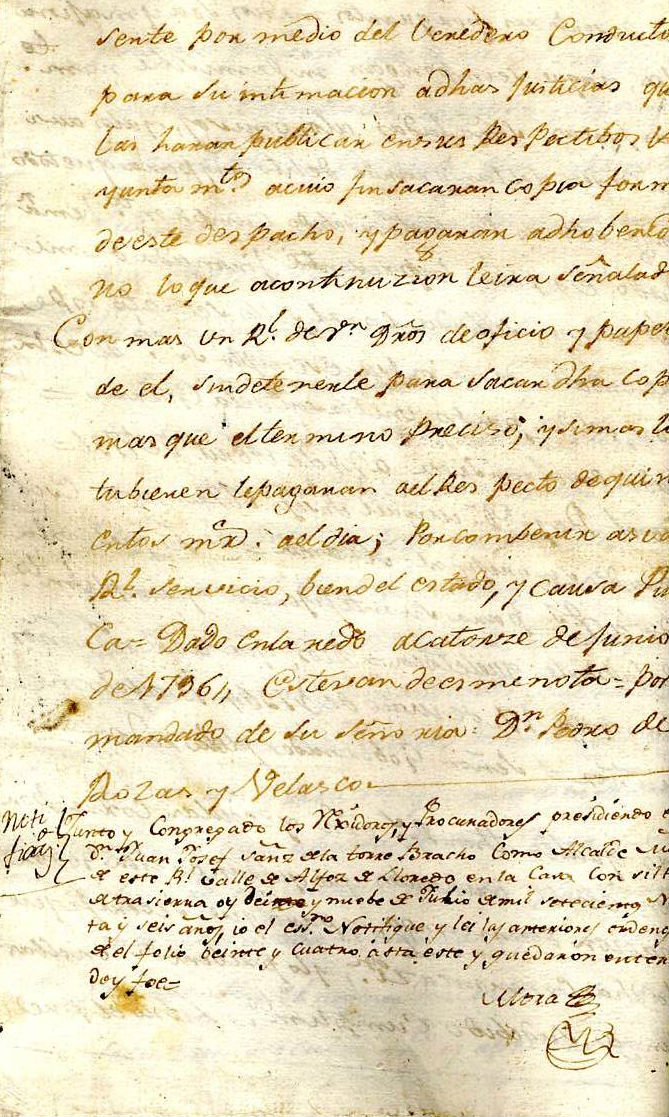 sente por medio del Veredero Conducto
para su intimacion adhas Justicias qu
las haran publicar ensus Res pectibos
yuntam.tos acuio fin sacaran copia form
de este despacho, y pagaran adho bere
no lo que acontinuzion leira señalad
Con mas un R.l de v.n Dr̃os de oficio y pape
de el, sin detenerle para sacar dha cop
mas que eltermino preciso; y si mas l
tubieren lepagaran alRes pecto de quin
entos mr̃s. aldia; Por combenir asi a
R.l servicio, bien del estado, y Causa Pu
Ca= Dado enlaredo acatorze de Junio
de 1796,, Estevan de esmenota= por
mandado de su señoria= D.n Pedro de
Rozas y Velasco
Noti
ficaz.on
Junto y Congregado los Rexidores, y Procuradores presidiendo
D.n Juan Josef Sañz de la torre Bracho Como Alcalde
de este R.l Valle de Alfoz de Lloredo en la Casa Con
de trasierra oy diez y nuebe de Junio de mil setecientos N
ta y seis años, io el ess.no Notifique y lei las anteriores
de el folio beinte y cuatro asta este y quedaron enten
doy fee=
Mora